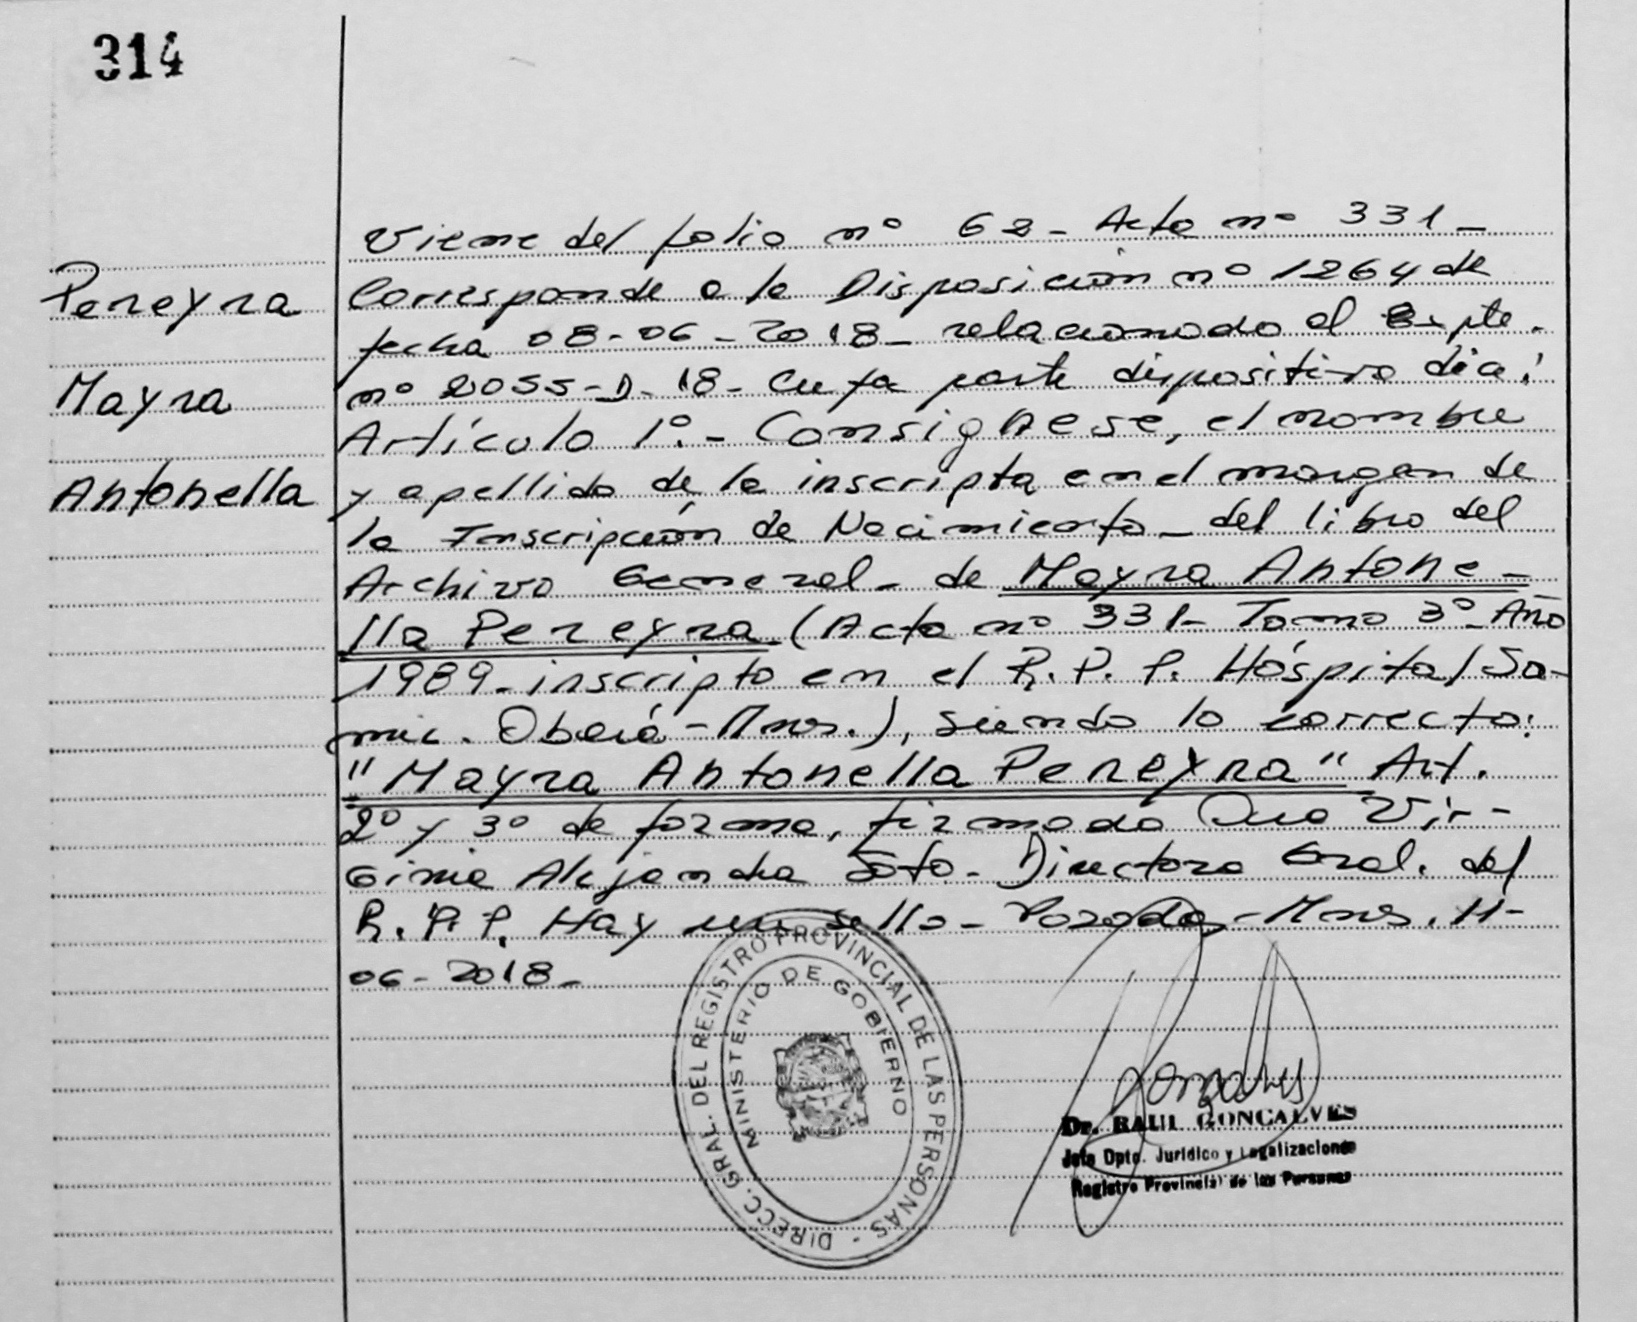 314
Pereyra
Mayra
Antonella
Viene del folio nº 62 - Acta nº 331 -
Corresponde a la Disposición nº 1264 de
fecha 08-06-2018 - relacionado al Expte.
nº 2055-D-18 - Cuya parte dispositiva dice:
Artículo 1º.- Consignese, el nombre
y apellido de la inscripta en el margen de
la Inscripción de Nacimiento - del libro del
Archivo General - de Mayra Antone-
lla Pereyra (Acta nº 331 - Tomo 3º - Año
1989 - inscripto en el R.P.P. Hóspital Sa-
mic. Oberá - Mnes.), siendo lo correcto:
"Mayra Antonella Pereyra" Art.
2º y 3º de forma, firmado Dra Vir-
ginia Alejandra Soto - Directora Gral. del
R.P.P. Hay un sello - Posadas - Mnes. 11-
06-2018 -
DIRECC. GRAL. DEL REGISTRO PROVINCIAL DE LAS PERSONAS -
MINISTERIO DE GOBIERNO
Dr. RAUL GONCALVES
Jefe Dpto. Jurídico y Legalizaciones
Registro Provincial de las Personas